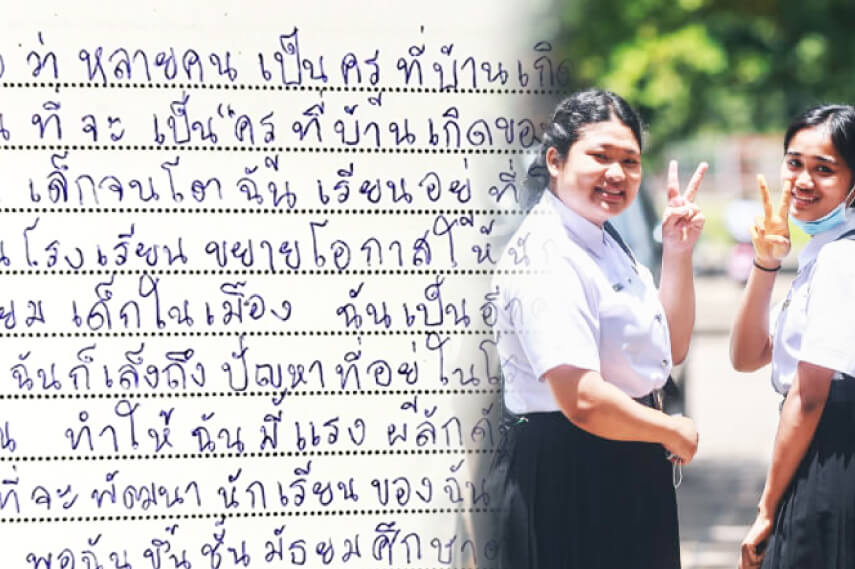 ว่า หลายคน เป็น ครู ที่บ้านเกิด
ที่ จะ เป็น "ครู ที่บ้านเกิดของ
เด็กจนโต ฉัน เรียนอยู่ ที่
โรงเรียน ขยายโอกาสให้
เด็กในเมือง ฉันเป็น อีก
ฉันก็เล็งถึง ปัญหา ที่อยู่ ใน
ทำให้ ฉัน มีแรง ผลักดัน
ที่จะ พัฒนา นักเรียน ของ ฉัน
พอฉัน ขึ้น ชั้น มัธยม ศึกษา